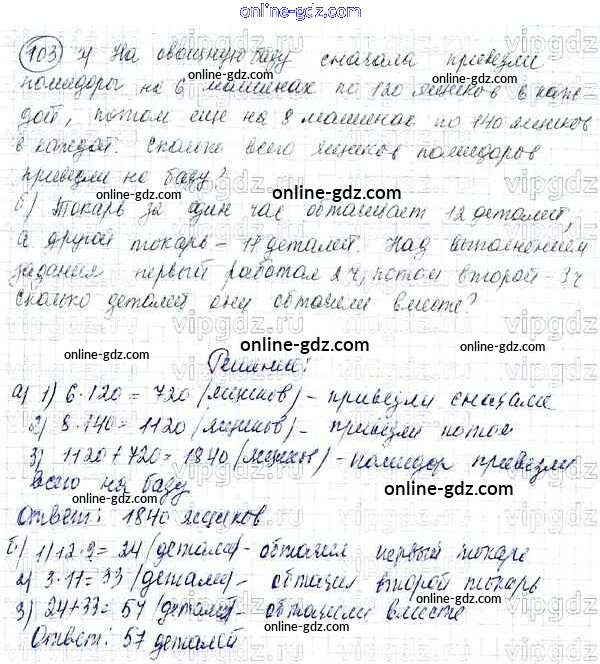 103 а) На овощную базу сначала привезли
помидоры на 6 машинах по 120 ящиков в каж-
дой, потом еще на 8 машинах по 140 ящиков
в каждой. Сколько всего ящиков помидоров
привезли на базу?
б) Токарь за один час обтачивает 12 деталей,
а другой токарь - 11 деталей. Над выполнением
задания первый работал 2 ч, потом второй - 3 ч
сколько деталей они обточили вместе?
Решение:
а) 1) 6·120 = 720 (ящиков) - привезли сначала
2) 8·140 = 1120 (ящиков) - привезли потом
3) 1120+720 = 1840 (ящиков) - помидор привезли
всего на базу
Ответ: 1840 ящиков
б) 1) 12·2 = 24 (детали) - обточил первый токарь
2) 3·11 = 33 (детали) - обточил второй токарь
3) 24+33 = 57 (деталей) - обточили вместе
Ответ: 57 деталей
online-gdz.com
vipgdz.ru